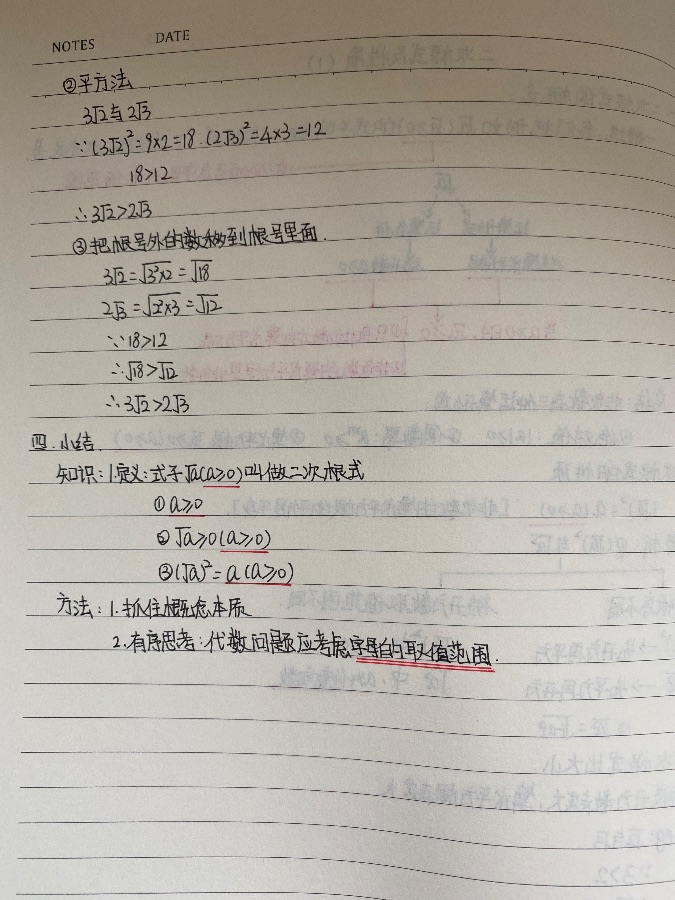 NOTES DATE
②平方法
3√2与2√3
∵(3√2)²=9×2=18.(2√3)²=4×3=12
18>12
∴3√2>2√3
③把根号外的数移到根号里面.
3√2=√(3²×2)=√18
2√3=√(2²×3)=√12
∵18>12
∴√18>√12
∴3√2>2√3
四.小结.
知识:1.定义:式子√a(a≥0)叫做二次根式
①a≥0
②√a≥0(a≥0)
③(√a)²=a(a≥0)
方法:1.抓住概念本质
2.有序思考:代数问题应考虑字母的取值范围.